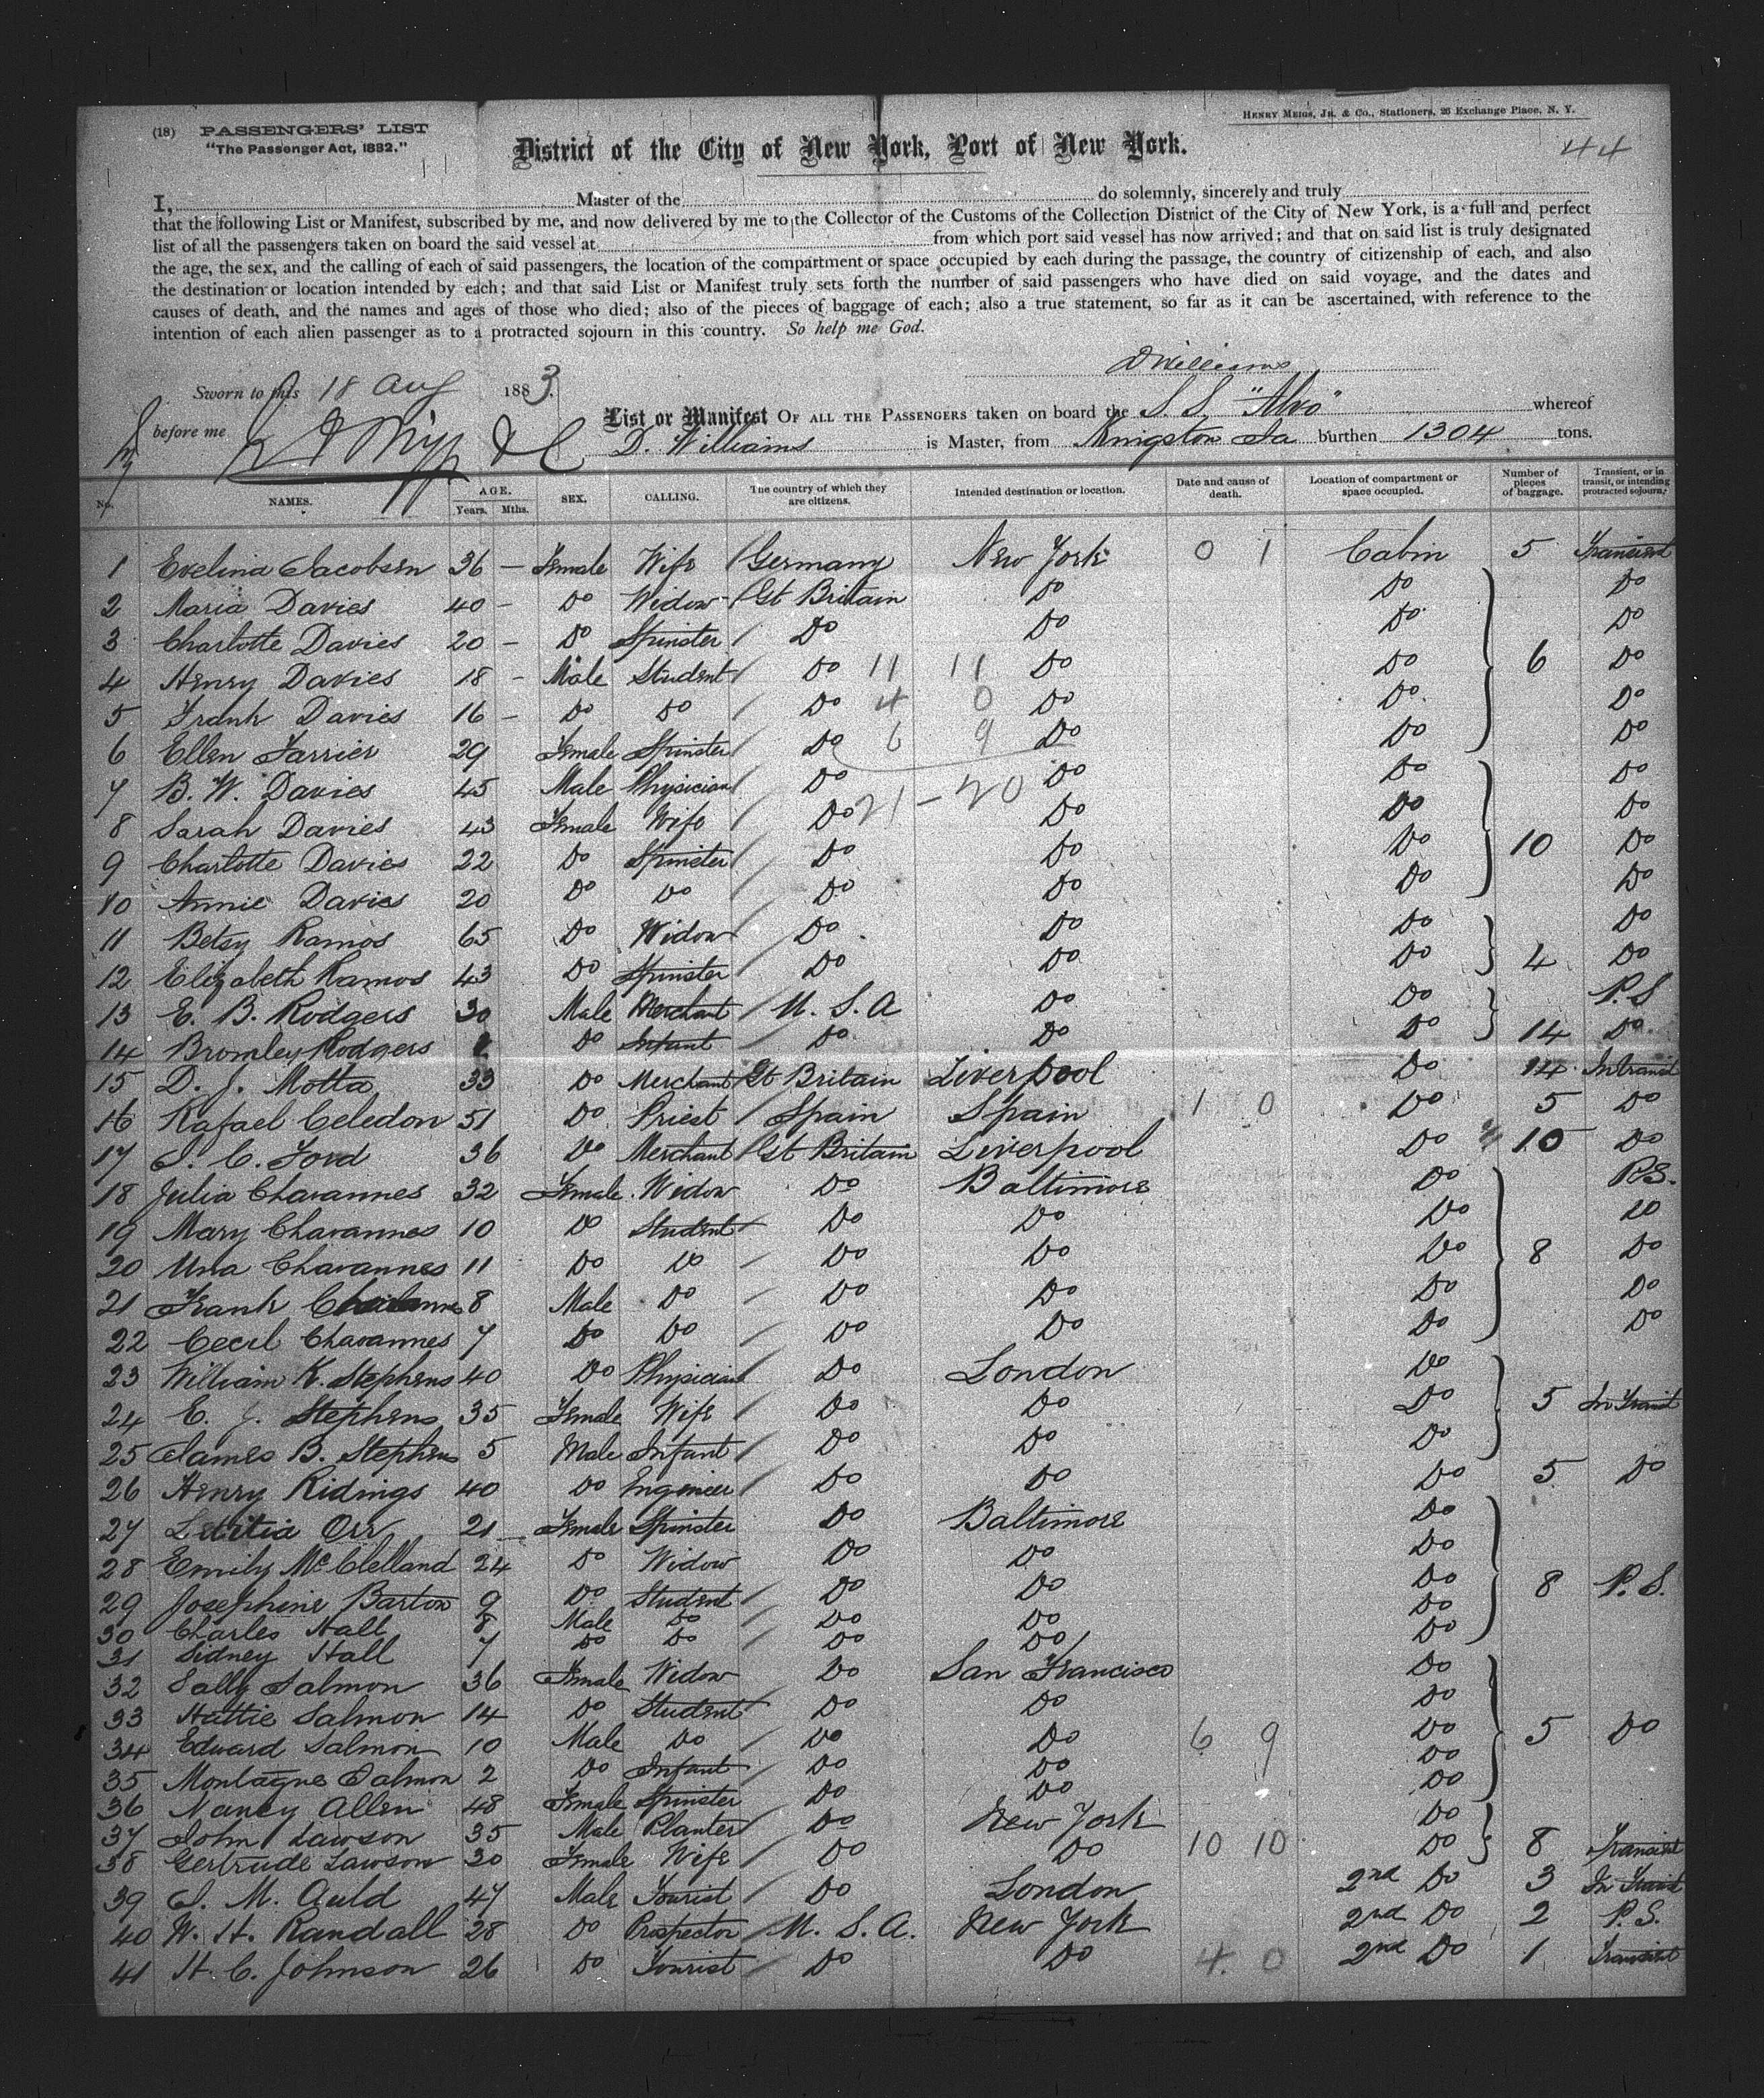 (18) PASSENGERS' LIST
"The Passenger Act, 1882."
HENRY MEIGS, JR. & CO., Stationers, 26 Exchange Place, N. Y.
District of the City of New York, Port of New York.
44
I, Master of the do solemnly, sincerely and truly
that the following List or Manifest, subscribed by me, and now delivered by me to the Collector of the Customs of the Collection District of the City of New York, is a full and perfect
list of all the passengers taken on board the said vessel at from which port said vessel has now arrived; and that on said list is truly designated
the age, the sex, and the calling of each of said passengers, the location of the compartment or space occupied by each during the passage, the country of citizenship of each, and also
the destination or location intended by each; and that said List or Manifest truly sets forth the number of said passengers who have died on said voyage, and the dates and
causes of death, and the names and ages of those who died; also of the pieces of baggage of each; also a true statement, so far as it can be ascertained, with reference to the
intention of each alien passenger as to a protracted sojourn in this country. So help me God.
D Williams
Sworn to this 18 Aug 1883.
before me
List or Manifest OF ALL THE PASSENGERS taken on board the S. S. "Alvo" whereof
D. Williams is Master, from Kingston Ja burthen 1304 tons.
No. NAMES. AGE. Years. Mths. SEX. CALLING. The country of which they are citizens. Intended destination or location. Date and cause of death. Location of compartment or space occupied. Number of pieces of baggage. Transient, or in transit, or intending protracted sojourn.
1 Evelina Jacobsen 36 - Female Wife / Germany New York 0 1 Cabin 5 Transient
2 Maria Davies 40 - Do Widow / Gt Britain Do Do Do
3 Charlotte Davies 20 - Do Spinster / Do Do Do Do
4 Henry Davies 18 - Male Student / Do 11 11 Do Do 6 Do
5 Frank Davies 16 - Do Do / Do 4 0 Do Do Do
6 Ellen Farrier 29 Female Spinster / Do 6 9 Do Do Do
7 B. W. Davies 45 Male Physician / Do Do Do Do
8 Sarah Davies 43 Female Wife / Do 21 - 20 Do Do Do
9 Charlotte Davies 22 Do Spinster / Do Do Do 10 Do
10 Annie Davies 20 Do Do / Do Do Do Do
11 Betsy Ramos 65 Do Widow / Do Do Do Do
12 Elizabeth Ramos 43 Do Spinster / Do Do Do 4 Do
13 E. B. Rodgers 30 Male Merchant / U. S. A Do Do P. S
14 Bromley Rodgers Do Infant / Do Do Do 14 Do
15 D. J. Motta 33 Do Merchant / Gt Britain Liverpool Do 14 In transit
16 Rafael Celedon 51 Do Priest / Spain Spain 1 0 Do 5 Do
17 J. C. Ford 36 Do Merchant / Gt Britain Liverpool Do 10 Do
18 Julia Chavannes 32 Female Widow Do Baltimore Do P.S.
19 Mary Chavannes 10 Do Student / Do Do Do Do
20 Una Chavannes 11 Do Do / Do Do Do 8 Do
21 Frank Chavannes 8 Male Do / Do Do Do Do
22 Cecil Chavannes 7 Do Do / Do Do Do Do
23 William K. Stephens 40 Do Physician / Do London Do
24 E. J. Stephens 35 Female Wife / Do Do Do 5 In Transit
25 James B. Stephens 5 Male Infant / Do Do Do
26 Henry Ridings 40 Do Engineer / Do Do Do 5 Do
27 Letitia Orr 21 Female Spinster Do Baltimore Do
28 Emily McClelland 24 Do Widow Do Do Do
29 Josephine Barton 9 Do Student / Do Do Do 8 P. S.
30 Charles Hall 8 Male Do / Do Do Do
31 Sidney Hall 7 Do Do / Do Do Do
32 Sally Salmon 36 Female Widow Do San Francisco Do
33 Hattie Salmon 14 Do Student / Do Do Do
34 Edward Salmon 10 Male Do / Do Do 6 9 Do 5 Do
35 Montague Salmon 2 Do Infant / Do Do Do
36 Nancy Allen 48 Female Spinster / Do Do Do
37 John Lawson 35 Male Planter / Do New York Do
38 Gertrude Lawson 30 Female Wife / Do Do 10 10 Do 8 Transient
39 J. M. Auld 47 Male Tourist / Do London 2nd Do 3 In Transit
40 W. H. Randall 28 Do Prospector / U. S. A. New York 2nd Do 2 P. S.
41 H. C. Johnson 26 Do Tourist / Do Do 4. 0 2nd Do 1 Transient